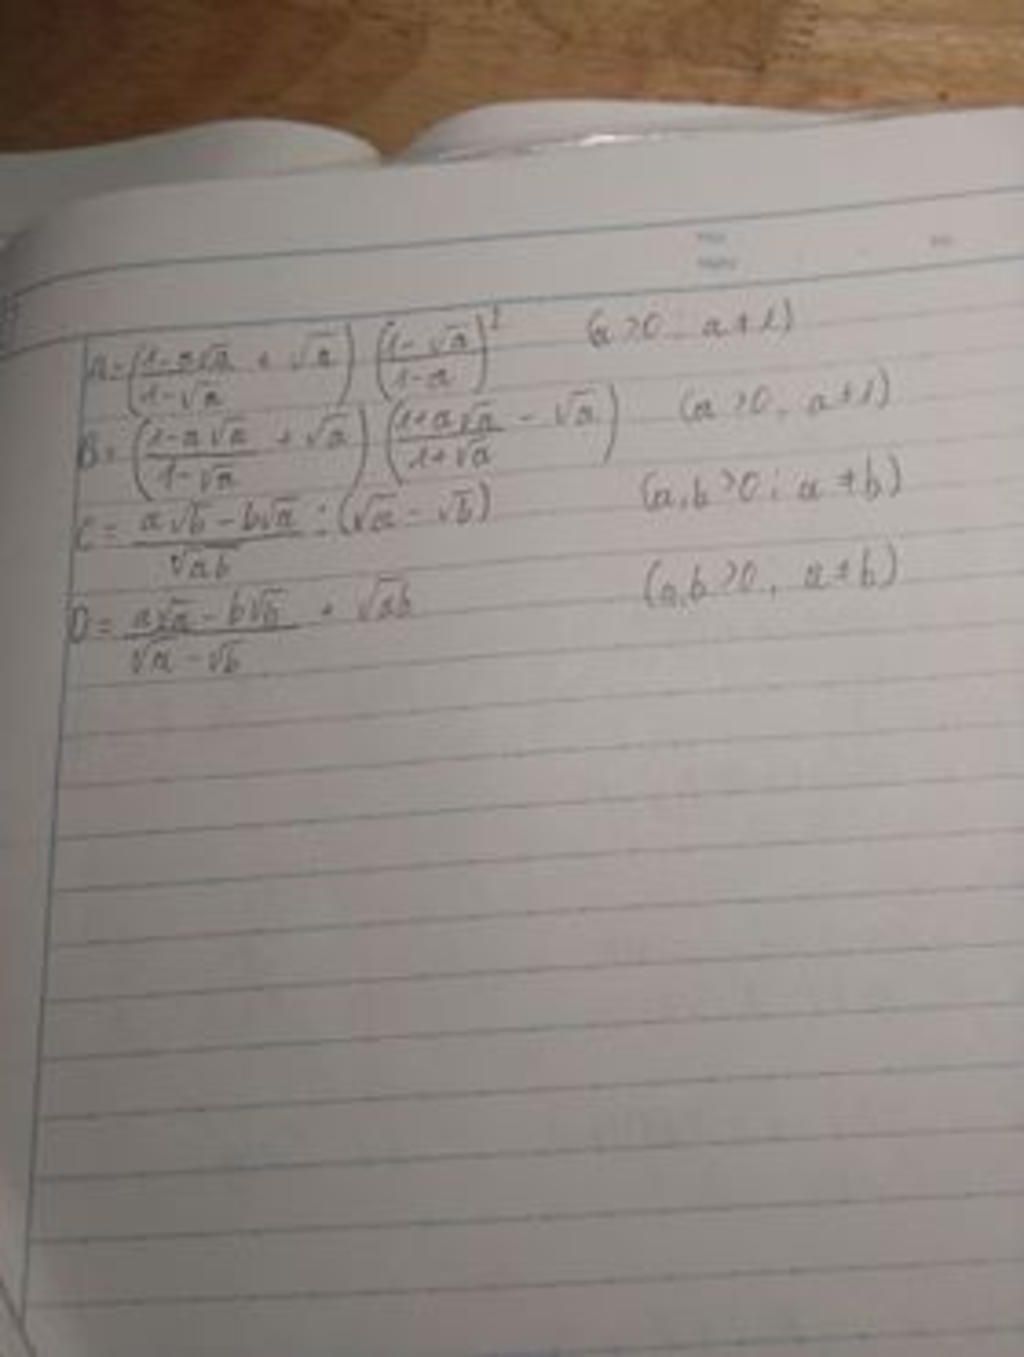 A = ((1-a√a)/(1-√a) + √a) ((1-√a)/(1-a))² (a>0; a≠1)
B = ((1-a√a)/(1-√a) + √a) ((1+a√a)/(1+√a) - √a) (a>0, a≠1)
C = (a√b - b√a)/√ab : (√a - √b) (a,b>0; a≠b)
D = (a√a - b√b)/(√a - √b) + √ab (a,b>0, a≠b)